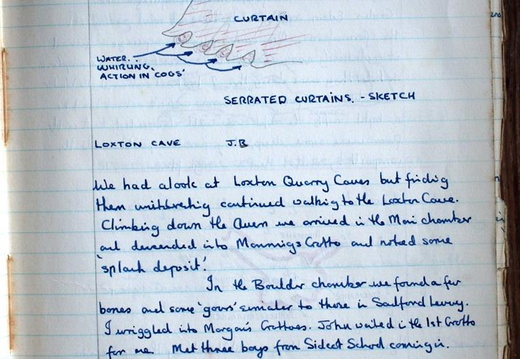 CURTAIN
WATER.
WHIRLING
ACTION IN COGS'
SERRATED CURTAINS. - SKETCH
LOXTON CAVE J.B
We had a look at Loxton Quarry Caves but finding
them uninteresting continued walking to the Loxton Cave.
Climbing down the Aven we arrived in the Main chamber
and descended into Grotto and noted some
'splash deposit'.
In the Boulder chamber we found a few
bones and some 'gours' similar to those in
I wriggled into Grottoes. John waited in the 1st Grotto
for me. Met three boys from Sidcot School coming in.